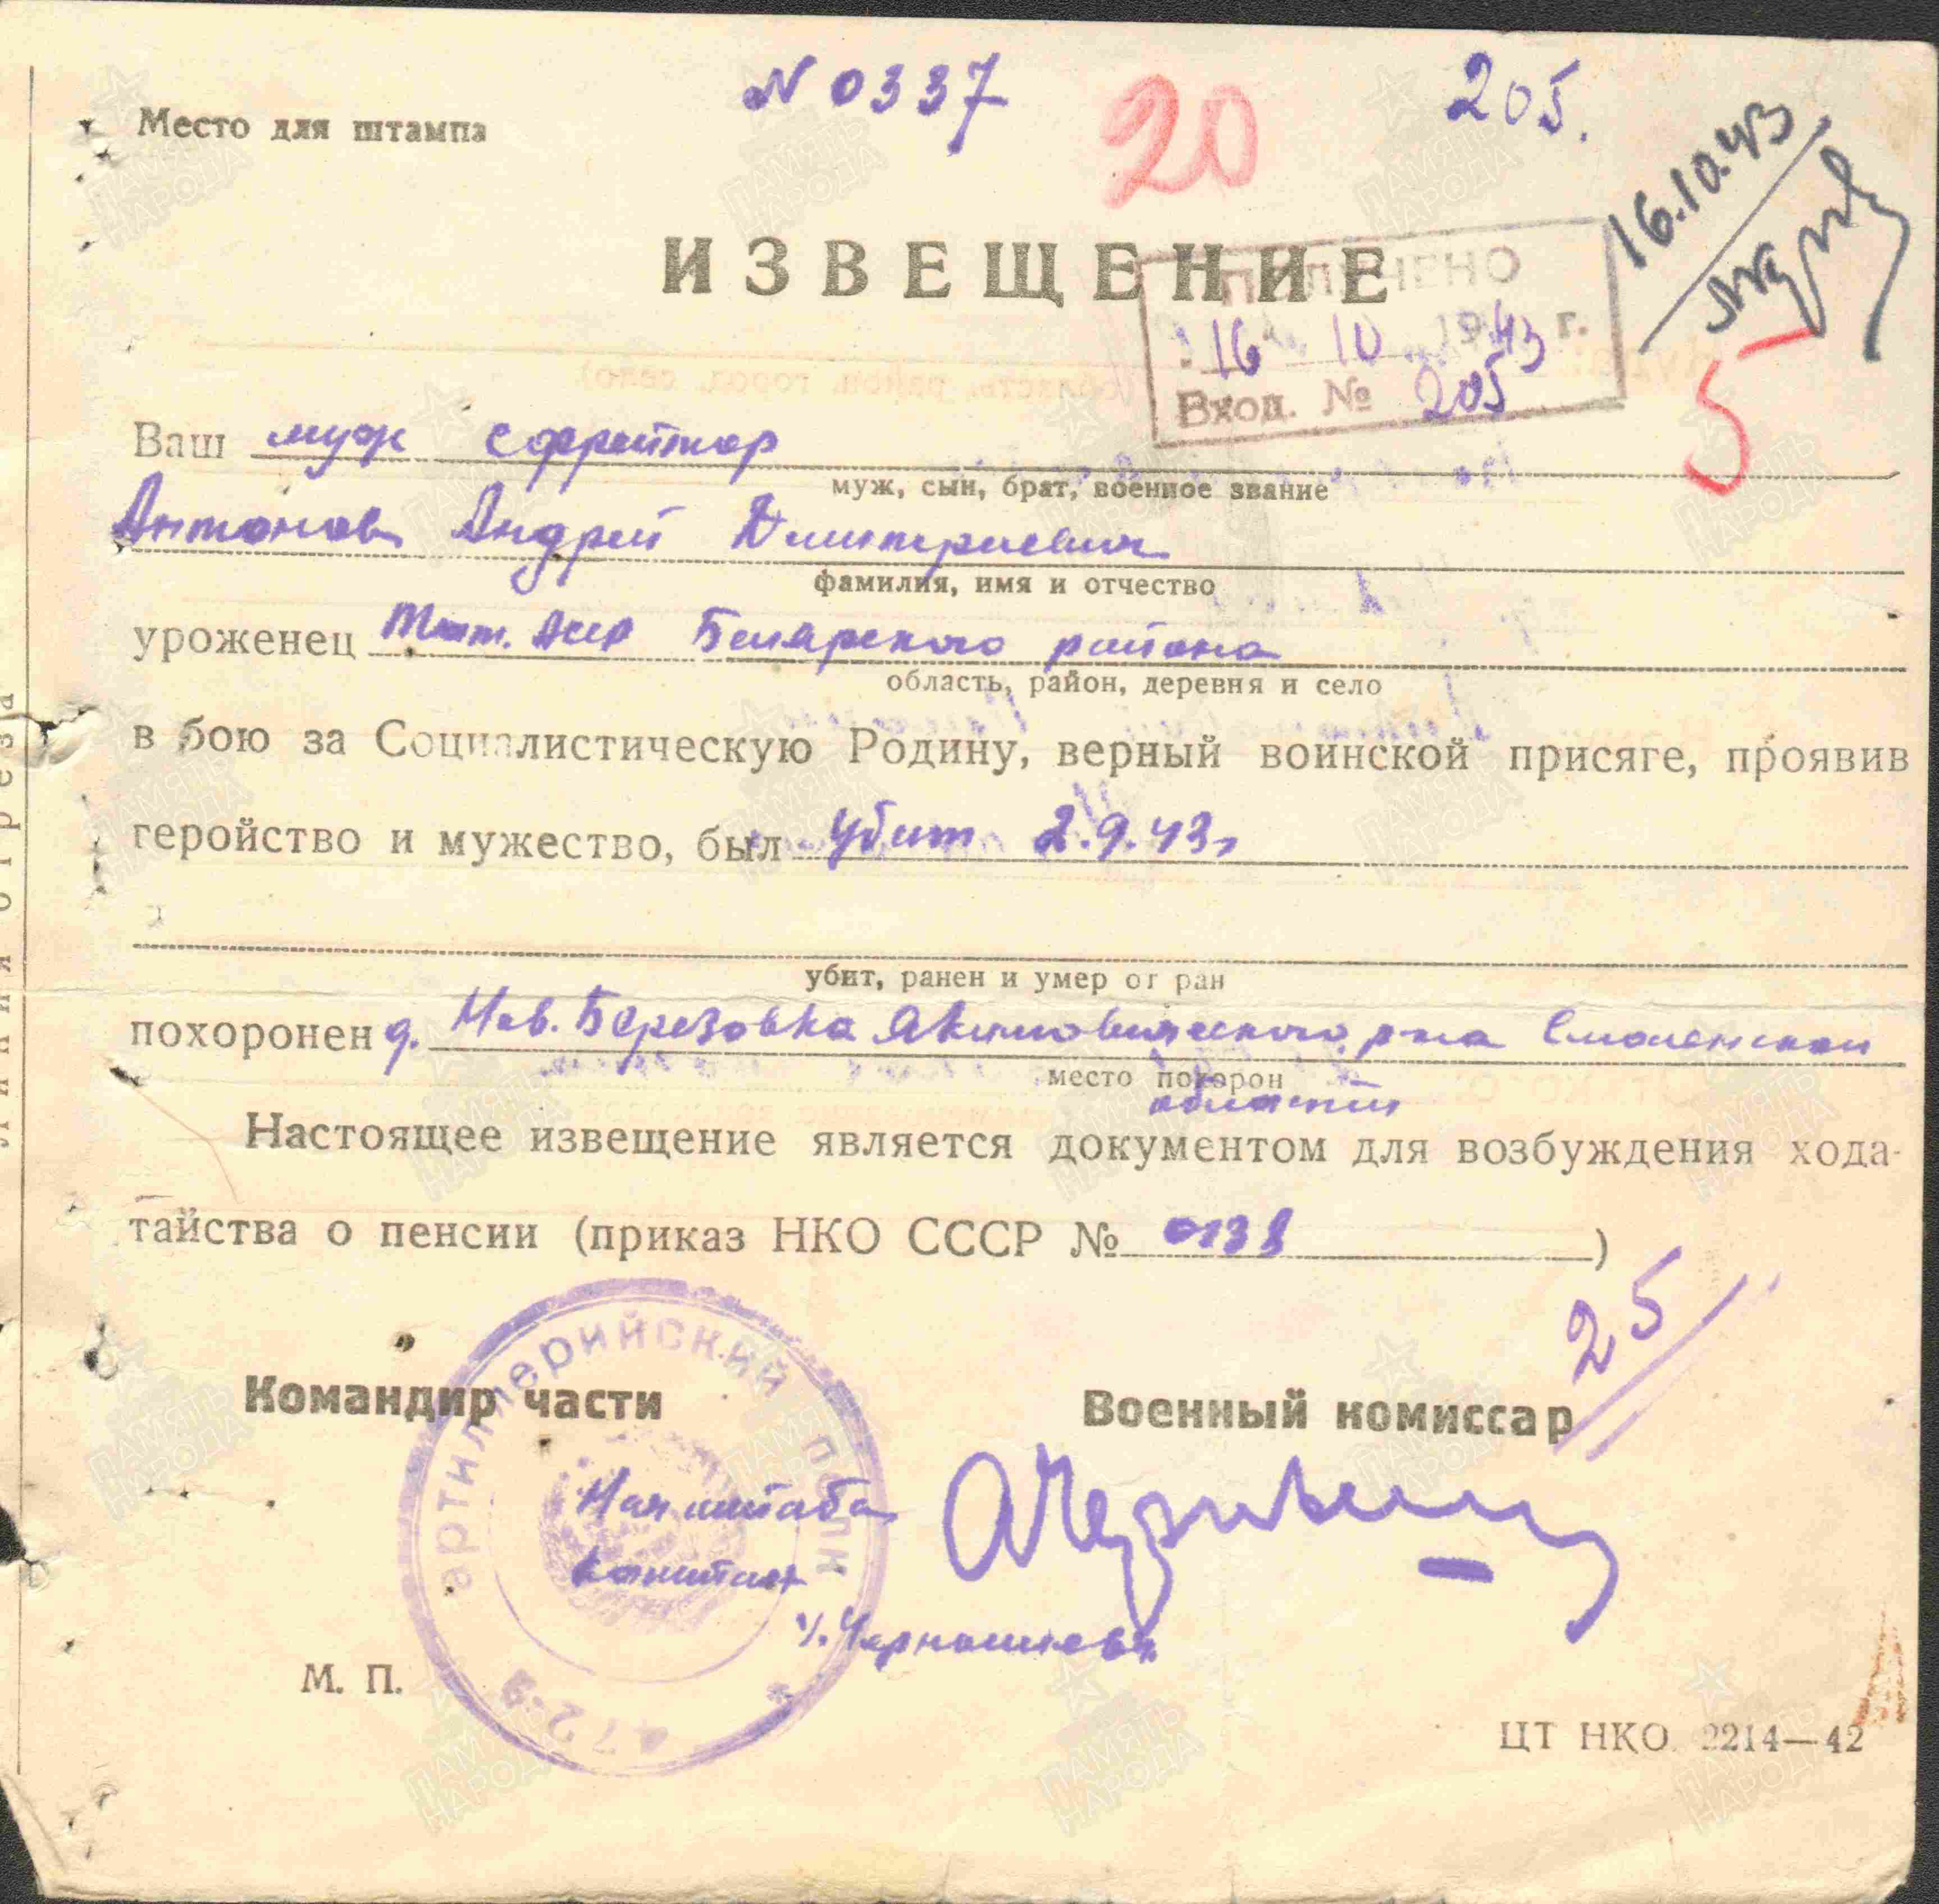 N 0337 20 205.
Место для штампа
16.10.43
ИЗВЕЩЕНИЕ
ПОЛУЧЕНО
16 10 1943 г.
Вход. № 205
5
Ваш муж ефрейтор
муж, сын, брат, военное звание
Антонов Андрей Дмитриевич
фамилия, имя и отчество
уроженец Тат. АССР Билярского района
область, район, деревня и село
в бою за Социалистическую Родину, верный воинской присяге, проявив
геройство и мужество, был убит 2.9.43г
убит, ранен и умер от ран
похоронен д. Нов. Березовка Якимовического р-на Смоленской
место похорон
области
Настоящее извещение является документом для возбуждения хода-
тайства о пенсии (приказ НКО СССР № 0138)
25
Командир части Военный комиссар
артиллерийский полк
Нач штаба
капитан
Чернышев
472-й
М. П.
ЦТ НКО 2214—42
линия отреза
ПАМЯТЬ НАРОДА